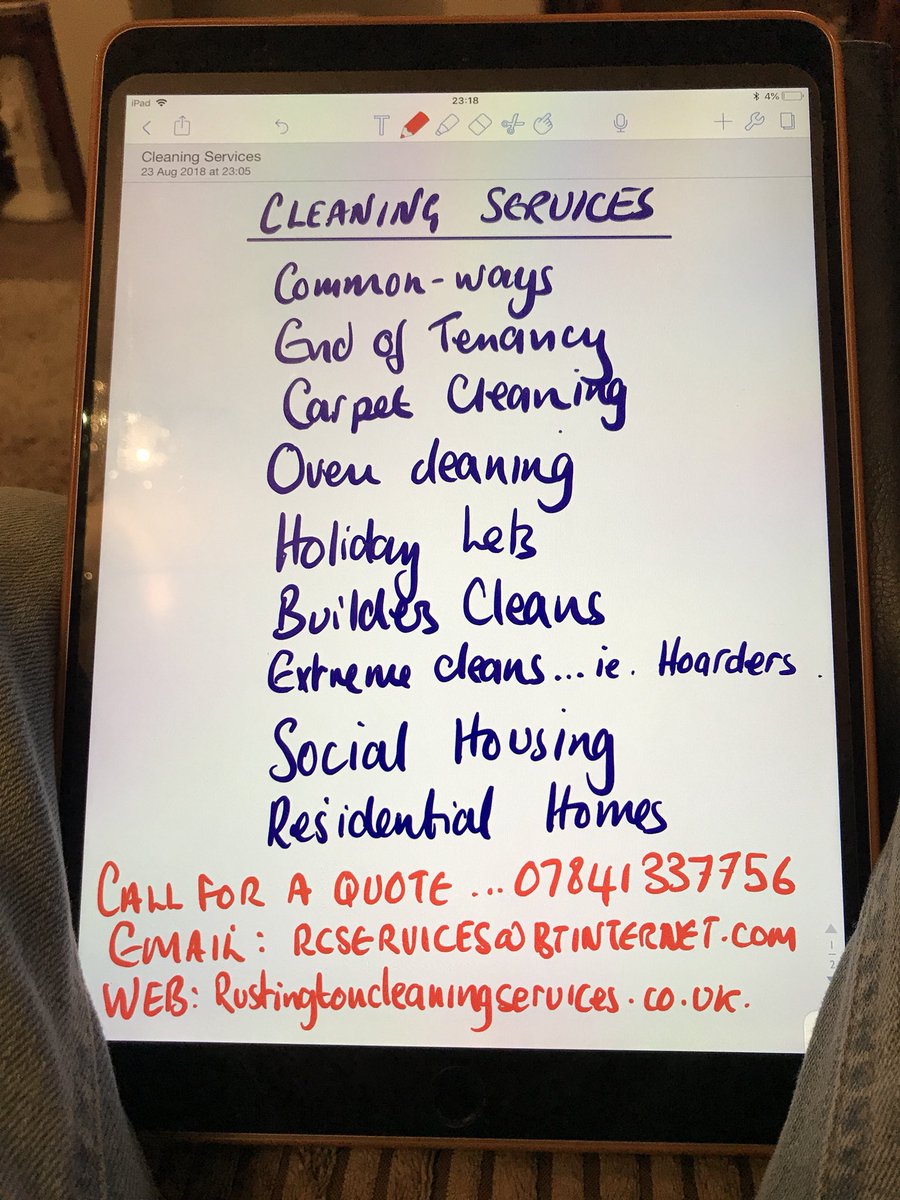 iPad
23:18
4%
T
Cleaning Services
23 Aug 2018 at 23:05
CLEANING SERVICES
Common-ways
End of Tenancy
Carpet Cleaning
Oven cleaning
Holiday Lets
Builders Cleans
Extreme cleans...ie. Hoarders.
Social Housing
Residential Homes
CALL FOR A QUOTE ...07841337756
EMAIL: RCSERVICES@BTINTERNET.COM
WEB: Rustingtoncleaningservices.co.uk.
1
2